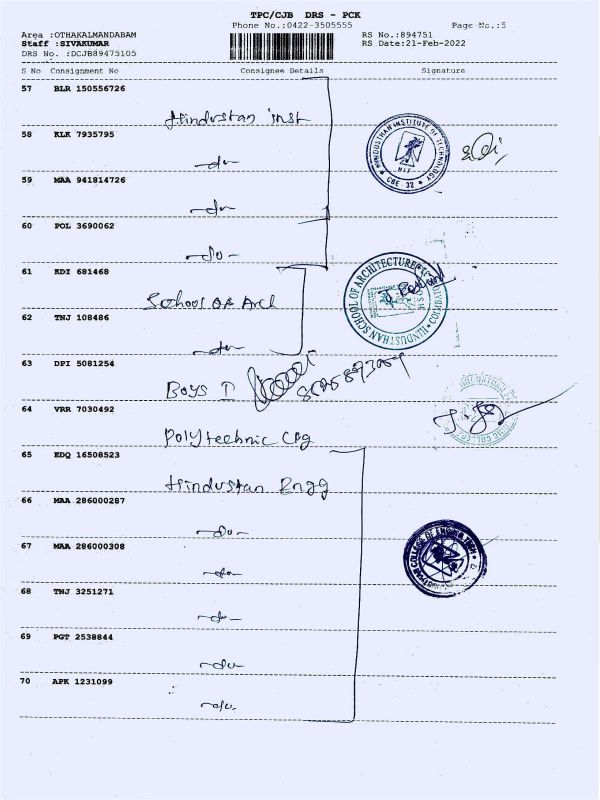 TPC/CJB DRS - PCK
Phone No.:0422-3505555 Page No.:5
Area :OTHAKALMANDABAM RS No.:894751
Staff :SIVAKUMAR RS Date:21-Feb-2022
DRS No. :DCJB89475105
S No Consignment No Consignee Details Signature
57 BLR 150556726
Hindustan inst
58 KLK 7935795
HINDUSTHAN INSTITUTE OF TECHNOLOGY
HIT
CBE 32
-do-
59 MAA 941814726
-do-
60 POL 3690062
-do-
61 KDI 681468
School of Arch
HINDUSTHAN SCHOOL OF ARCHITECTURE
62 TNJ 108486
-do-
63 DPI 5081254
Boys I
64 VRR 7030492
Polytechnic Clg
65 EDQ 16508523
Hindustan Engg
66 MAA 286000287
-do-
67 MAA 286000308
COLLEGE OF ENGG
-do-
68 TNJ 3251271
-do-
69 PGT 2538844
-do-
70 APK 1231099
-do-